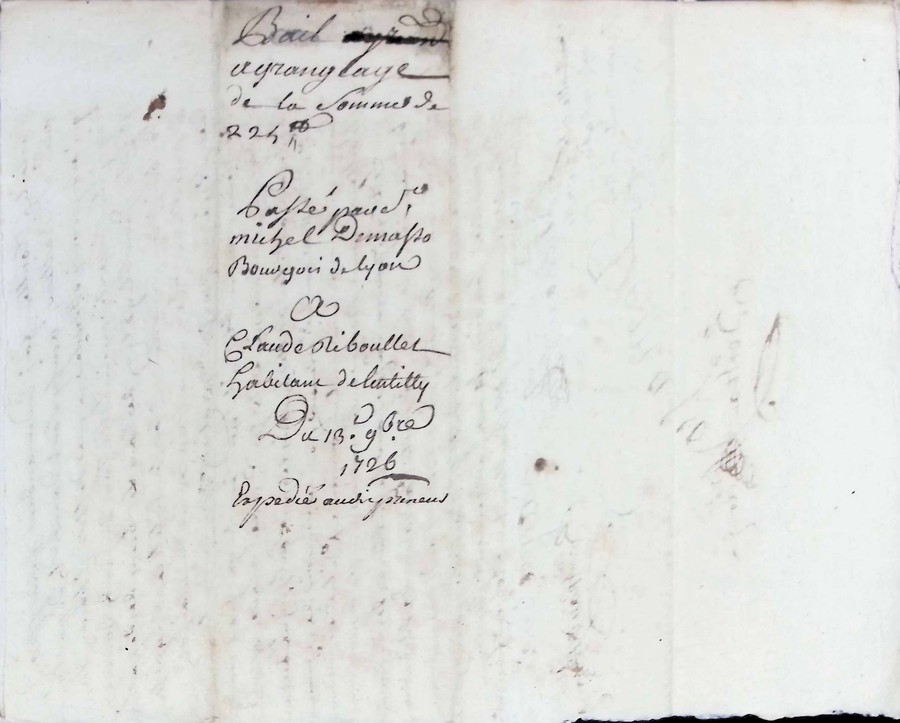 Bail
agrangeage
de la Somme de
225 ₶
Passé par s.r
michel Demasso
Bourgois de lyon
A
Claude Riboullet
habitant de lentilly
Du 13.e 9.bre
1726
Expedié audit preneur